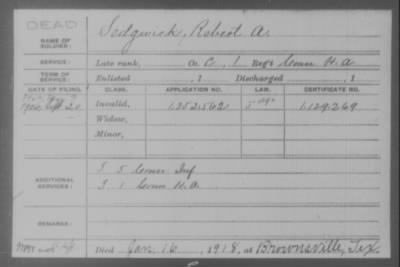 DEAD
NAME OF SOLDIER: Sedgwick, Robert A.
SERVICE: Late rank, Co. C, 1 Reg't Conn H.A.
TERM OF SERVICE: Enlisted , 1 Discharged , 1
DATE OF FILING. CLASS. APPLICATION NO. LAW. CERTIFICATE NO.
1900 Sept 20 Invalid, 1,252,562 1,129,269
Widow,
Minor,
ADDITIONAL SERVICES: 5 Conn Inf
1 Conn H.A.
REMARKS:
Died Jan 16, 1918, at Brownsville, Tex.